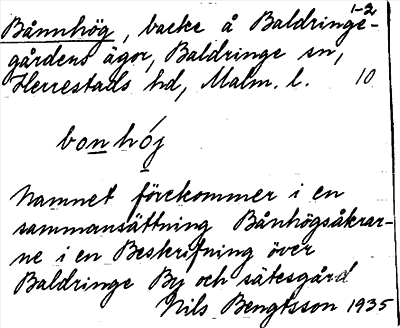 1-2
Bånnhög, backe å Baldringe-
gårdens ägor, Baldringe sn,
Herrestads hd, Malm. l. 10
bonhój
Namnet förekommer i en
sammansättning Bånhögsåkrar-
ne i en Beskrifning över
Baldringe By och sätesgård
Nils Bengtsson 1935